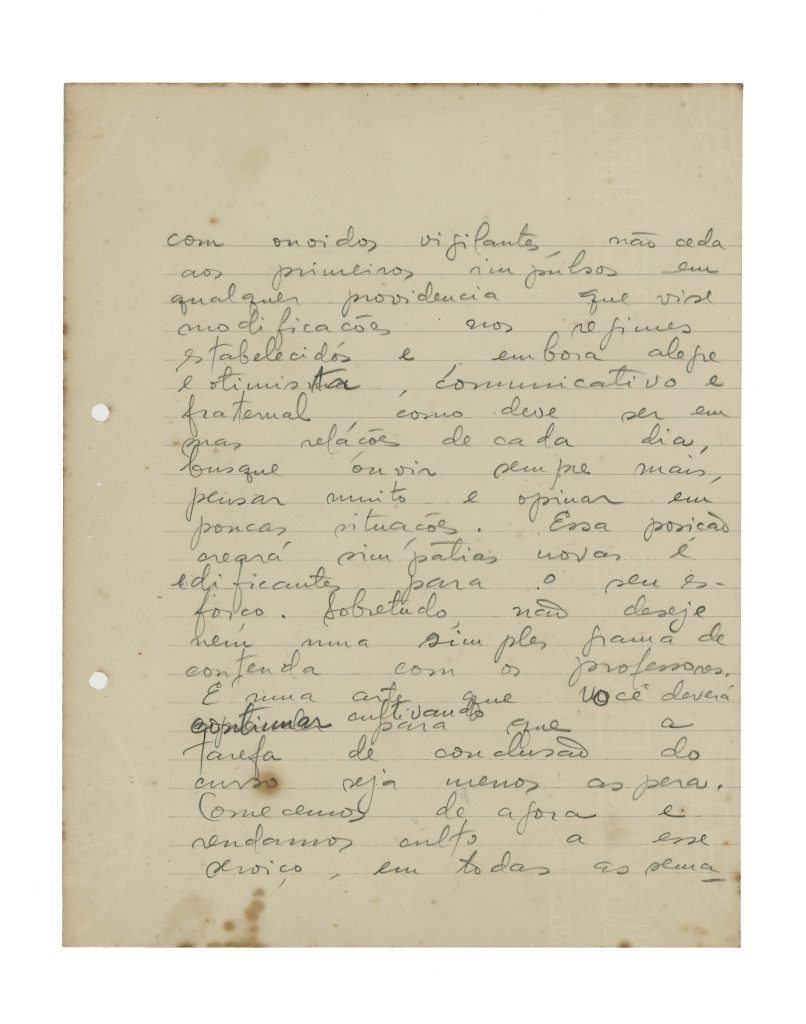 com ouvidos vigilantes, não ceda
aos primeiros impulsos em
qualquer providencia que vise
modificacões nos regimes
estabelecidos e, embora alegre
e otimista, comunicativo e
fraternal, como deve ser em
suas relacões de cada dia,
busque ouvir sempre mais,
pensar muito e opinar em
poucas situações. Essa posicão
creará simpatias novas e
edificantes para o seu es-
forco. Sobretudo, não deseje
nem uma simples grama de
contenda com os professores.
É uma arte que você deverá
continuar cultivando para que a
tarefa de conclusão do
curso seja menos aspera.
Comecemos de agora e
rendamos culto a esse
serviço, em todas as sema